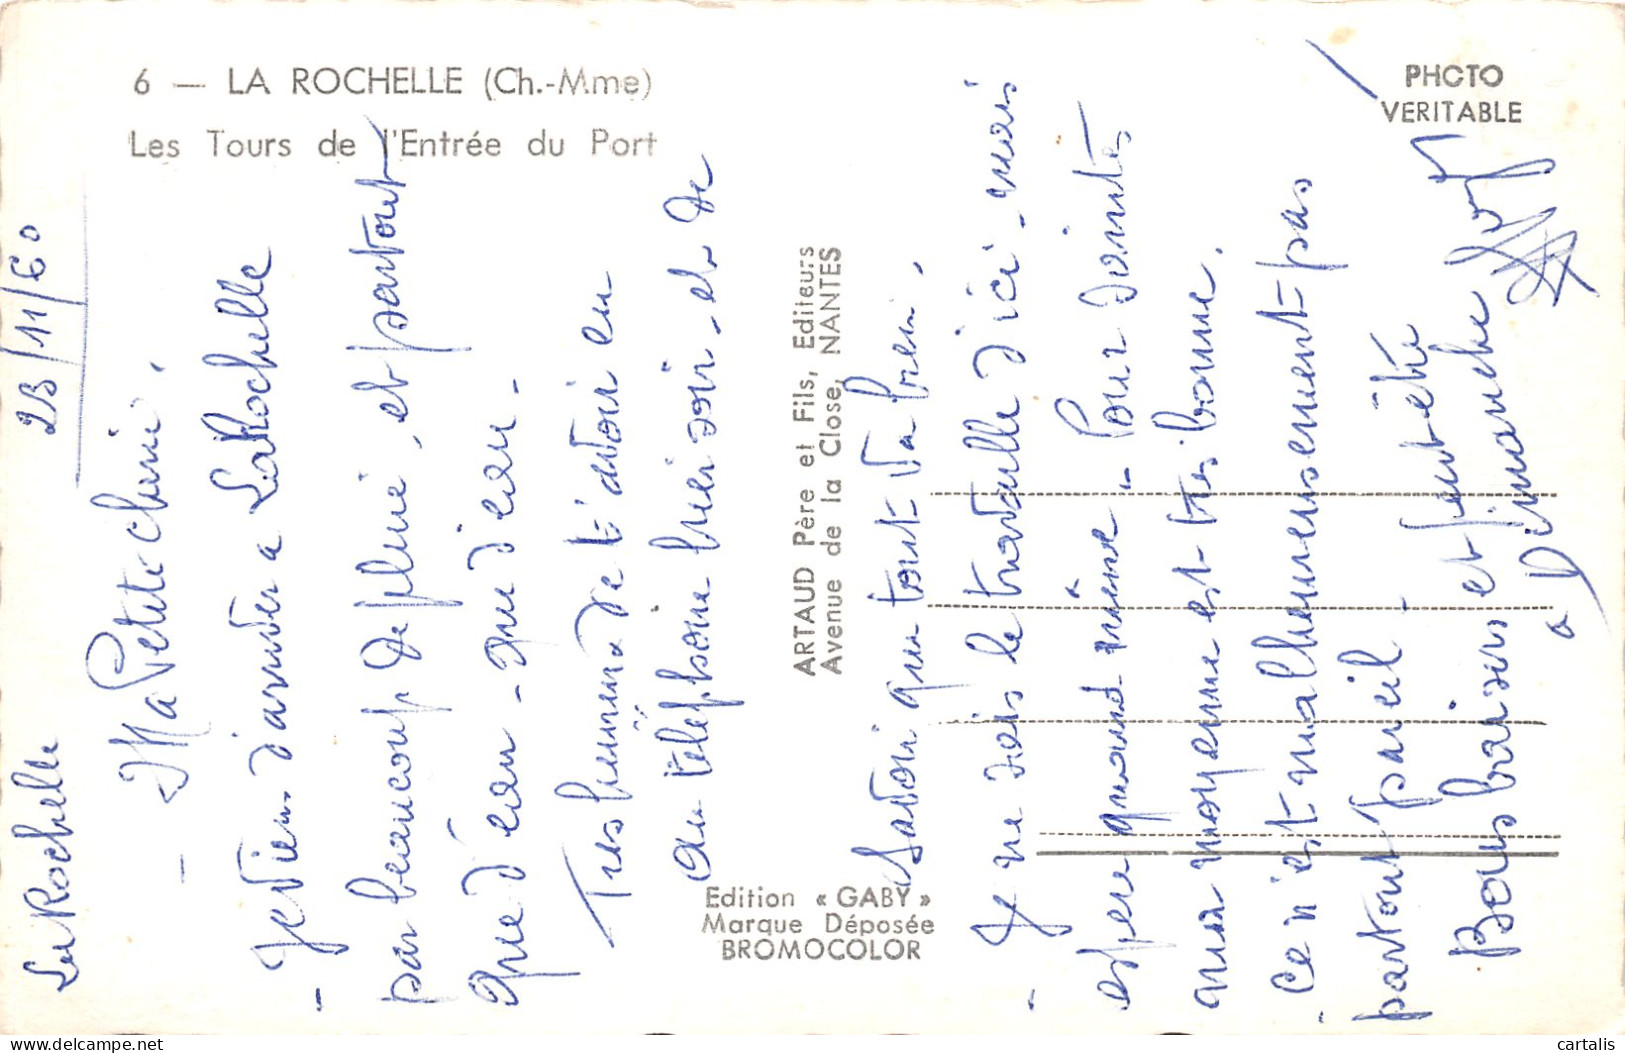 6 — LA ROCHELLE (Ch.-Mme)
Les Tours de l'Entrée du Port
PHOTO
VERITABLE
ARTAUD Père et Fils, Editeurs
Avenue de la Close, NANTES
Edition « GABY »
Marque Déposée
BROMOCOLOR
La Rochelle 23/11/60
- Ma Petite cherie,
- Je viens d'arriver a La Rochelle
par beaucoup de pluie, et partout
que d'eau - que d'eau -
Tres heureux de t'avoir eu
au telephone hier soir - et de
savoir que tout va bien.
- Je ne sais le travaille d'ici - mais
espere quand même - Pour Saintes
ma moyenne est tres bonne.
- Ce n'est malheureusement pas
partout pareil -
Bons baisers et peut être
a Dimanche
cartalis